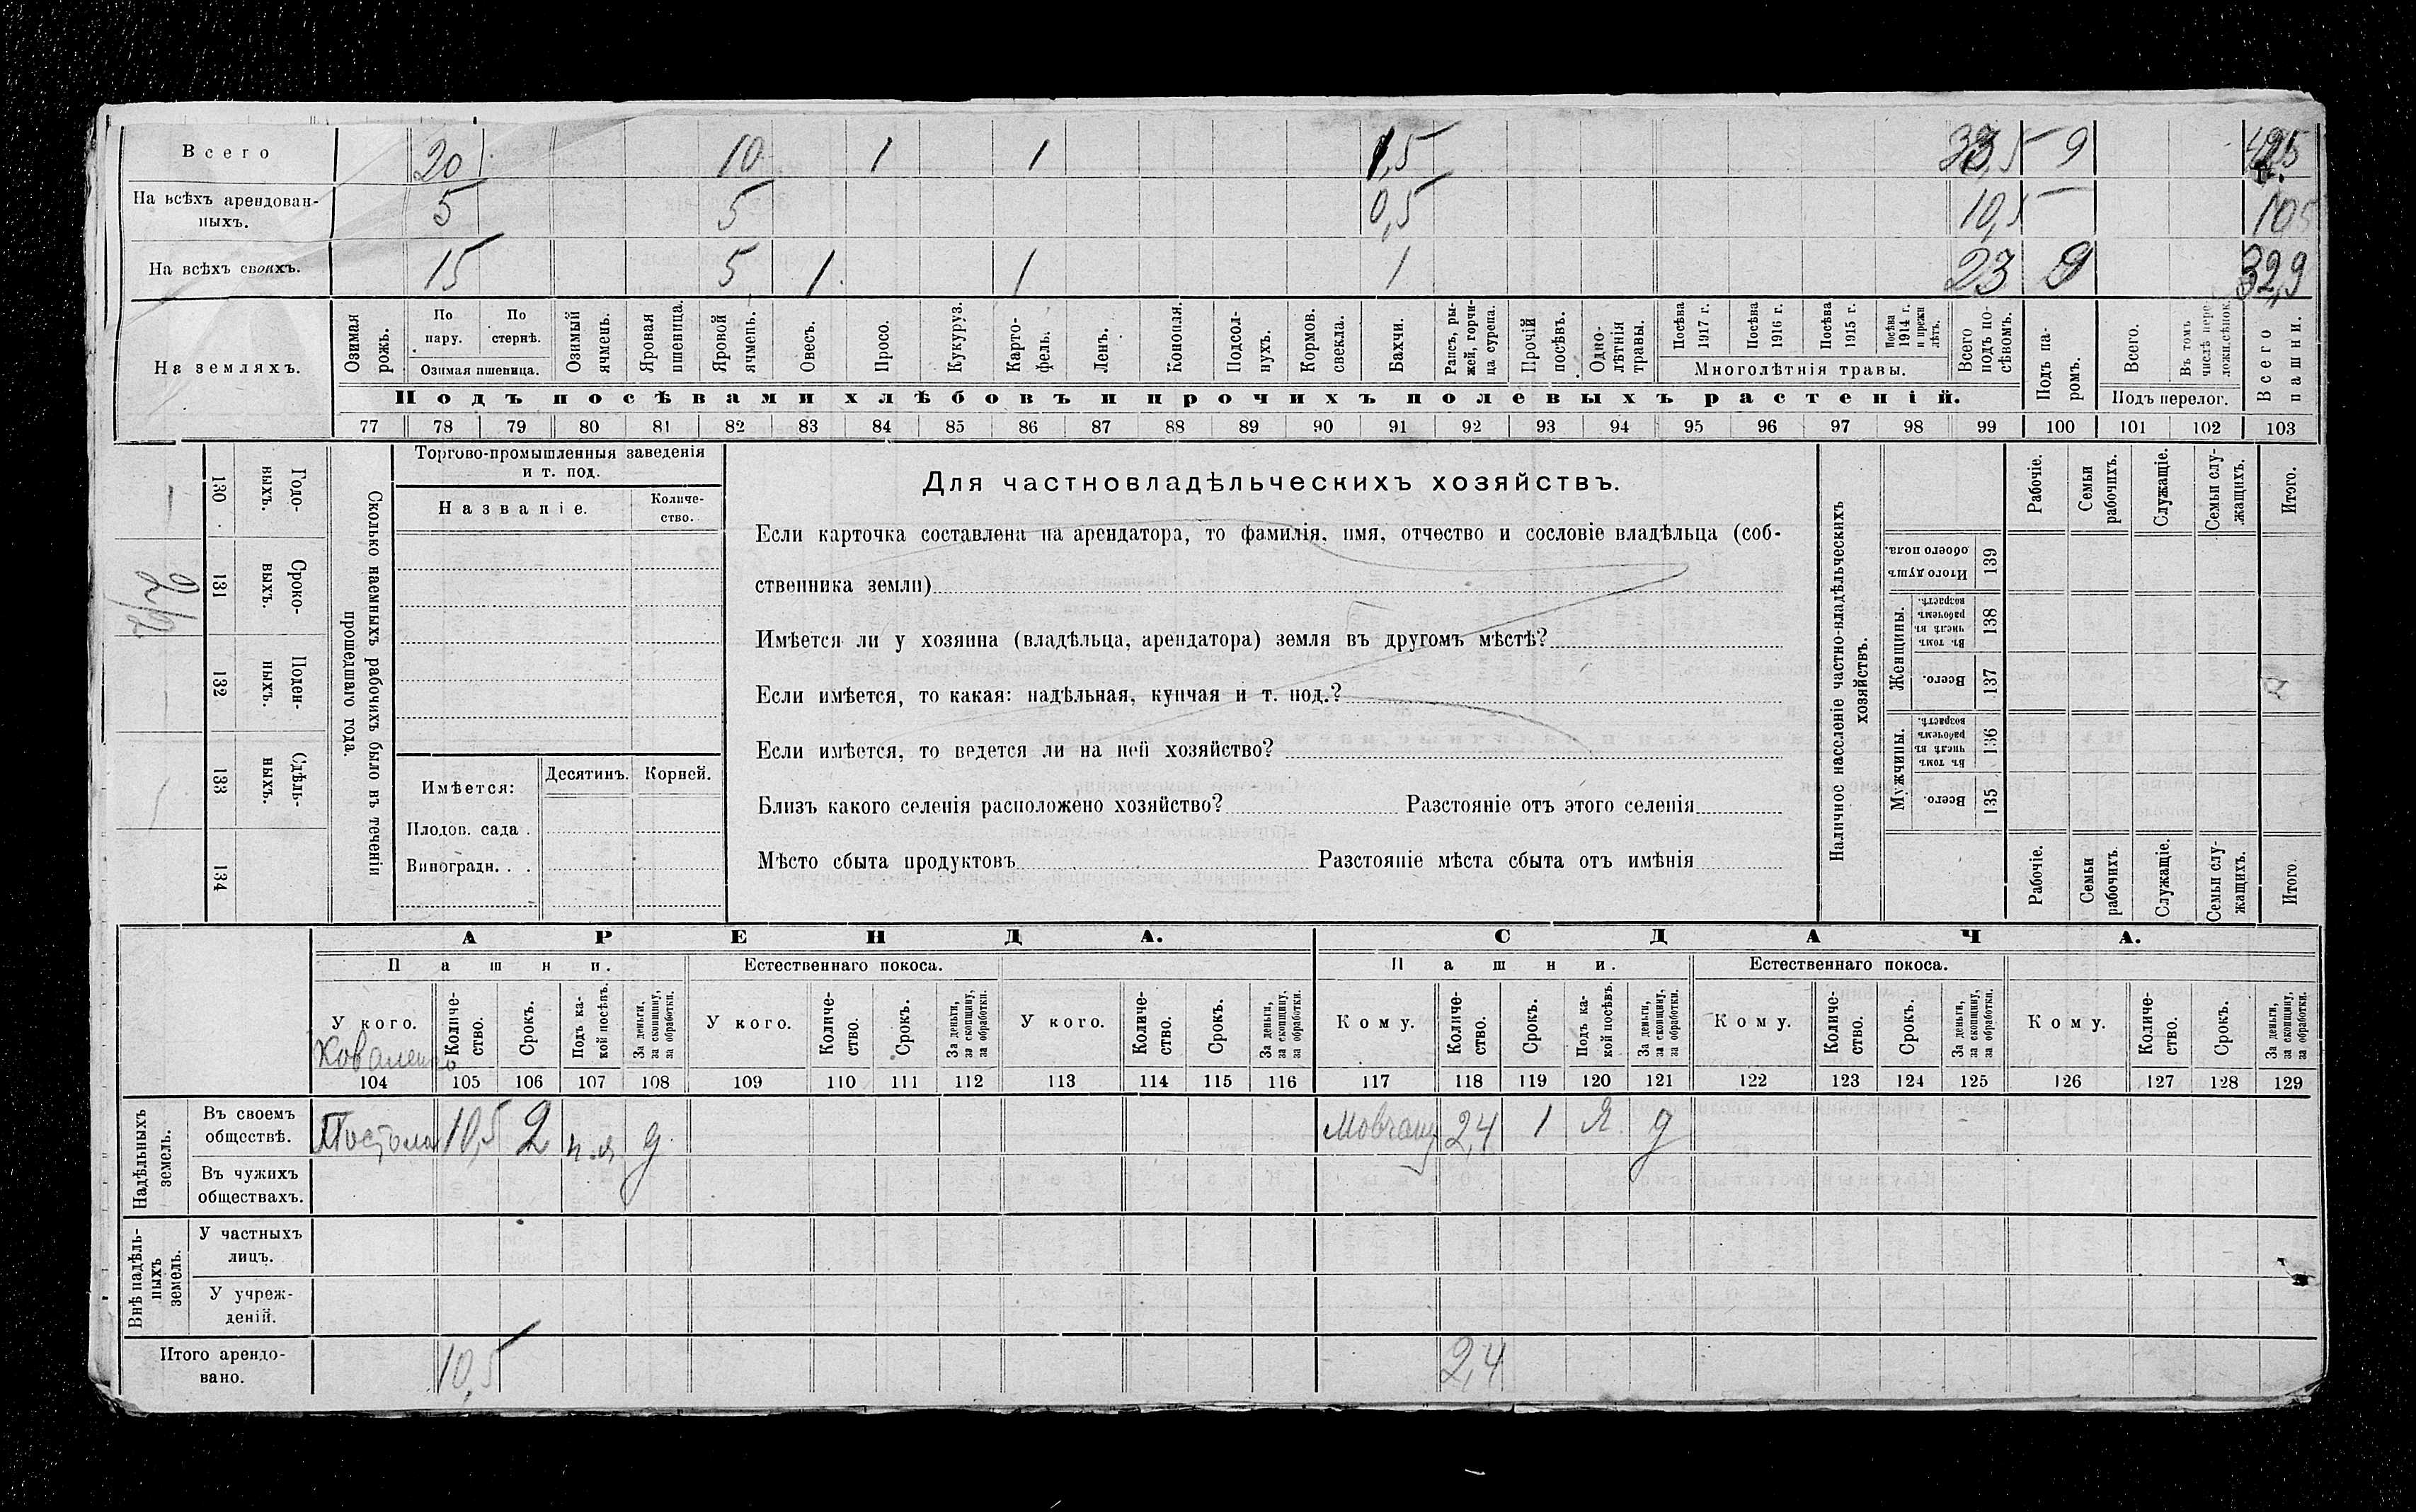 Всего 20 10 1 1 1,5 33,5 9
На всѣхъ арендован-
ныхъ. 5 5 0,5 10,5 10,5
На всѣхъ своихъ. 15 5 1 1 1 23 9 32,9
На земляхъ.
Озимая рожь.
По пару.
По стернѣ.
Озимая пшеница.
Озимый ячмень.
Яровая пшеница.
Яровой ячмень.
Овесъ.
Просо.
Кукуруз.
Карто-
фель.
Ленъ.
Конопля.
Подсол-
нухъ.
Кормов.
свекла.
Бахчи.
Рапсъ, ры-
жей, горчи-
ца сурепа.
Прочій
посѣвъ.
Одно-
лѣтнія
травы.
Посѣва
1917 г.
Посѣва
1916 г.
Посѣва
1915 г.
Посѣва
1914 г.
и прежн
лѣтъ.
Многолѣтнія травы.
Всего
подъ по-
сѣвомъ.
Подъ па-
ромъ.
Всего.
Въ томъ
числѣ пере-
ложн.сѣнок.
Подъ перелог.
Всего
пашни.
Подъ посѣвами хлѣбовъ и прочихъ полевыхъ растеній.
77 78 79 80 81 82 83 84 85 86 87 88 89 90 91 92 93 94 95 96 97 98 99 100 101 102 103
Годо-
выхъ.
130
Сроко-
выхъ.
131
Поден-
ныхъ.
132
Сдѣль-
ныхъ.
133
134
Сколько наемныхъ рабочихъ было въ теченіи
прошедшаго года.
Торгово-промышленныя заведенія
и т. под.
Названіе.
Количе-
ство.
Имѣется:
Десятинъ.
Корней.
Плодов. сада .
Виноградн. . .
Для частновладѣльческихъ хозяйствъ.
Если карточка составлена на арендатора, то фамилія, имя, отчество и сословіе владѣльца (соб-
ственника земли)
Имѣется ли у хозяина (владѣльца, арендатора) земля въ другомъ мѣстѣ?
Если имѣется, то какая: надѣльная, купчая и т. под.?
Если имѣется, то ведется ли на ней хозяйство?
Близъ какого селенія расположено хозяйство? Разстояніе отъ этого селенія
Мѣсто сбыта продуктовъ Разстояніе мѣста сбыта отъ имѣнія
Наличное населеніе частно-владѣльческихъ
хозяйствъ.
Рабочіе.
Семьи
рабочихъ.
Служащіе.
Семьи слу-
жащихъ.
Итого.
Итого душъ
обоего пола.
139
Женщины.
Въ томъ
числѣ въ
рабочемъ
возрастѣ.
138
Всего.
137
Мужчины.
Въ томъ
числѣ въ
рабочемъ
возрастѣ.
136
Всего.
135
Рабочіе.
Семьи
рабочихъ
Служащіе.
Семьи слу-
жащихъ.
Итого.
АРЕНДА. СДАЧА.
Пашни. Естественнаго покоса. Пашни. Естественнаго покоса.
У кого.
Количе-
ство.
Срокъ.
Подъ ка-
кой посѣвъ.
За деньги,
за скопщину,
за обработки.
У кого.
Количе-
ство.
Срокъ.
За деньги,
за скопщину,
за обработки.
У кого.
Количе-
ство.
Срокъ.
За деньги,
за скопщину,
за обработки.
Кому.
Количе-
ство.
Срокъ.
Подъ ка-
кой посѣвъ.
За деньги,
за скопщину,
за обработки.
Кому.
Количе-
ство.
Срокъ.
За деньги,
за скопщину,
за обработки.
Кому.
Количе-
ство.
Срокъ.
За деньги,
за скопщину,
за обработки.
104 105 106 107 108 109 110 111 112 113 114 115 116 117 118 119 120 121 122 123 124 125 126 127 128 129
Надѣльныхъ
земель.
Въ своемъ
обществѣ. 10,5 2 п.я д Мовчану 2,4 1 Я д
Въ чужихъ
обществахъ.
Внѣ надѣль-
ныхъ
земель.
У частныхъ
лицъ.
У учреж-
деній.
Итого арендо-
вано. 10,5 2,4